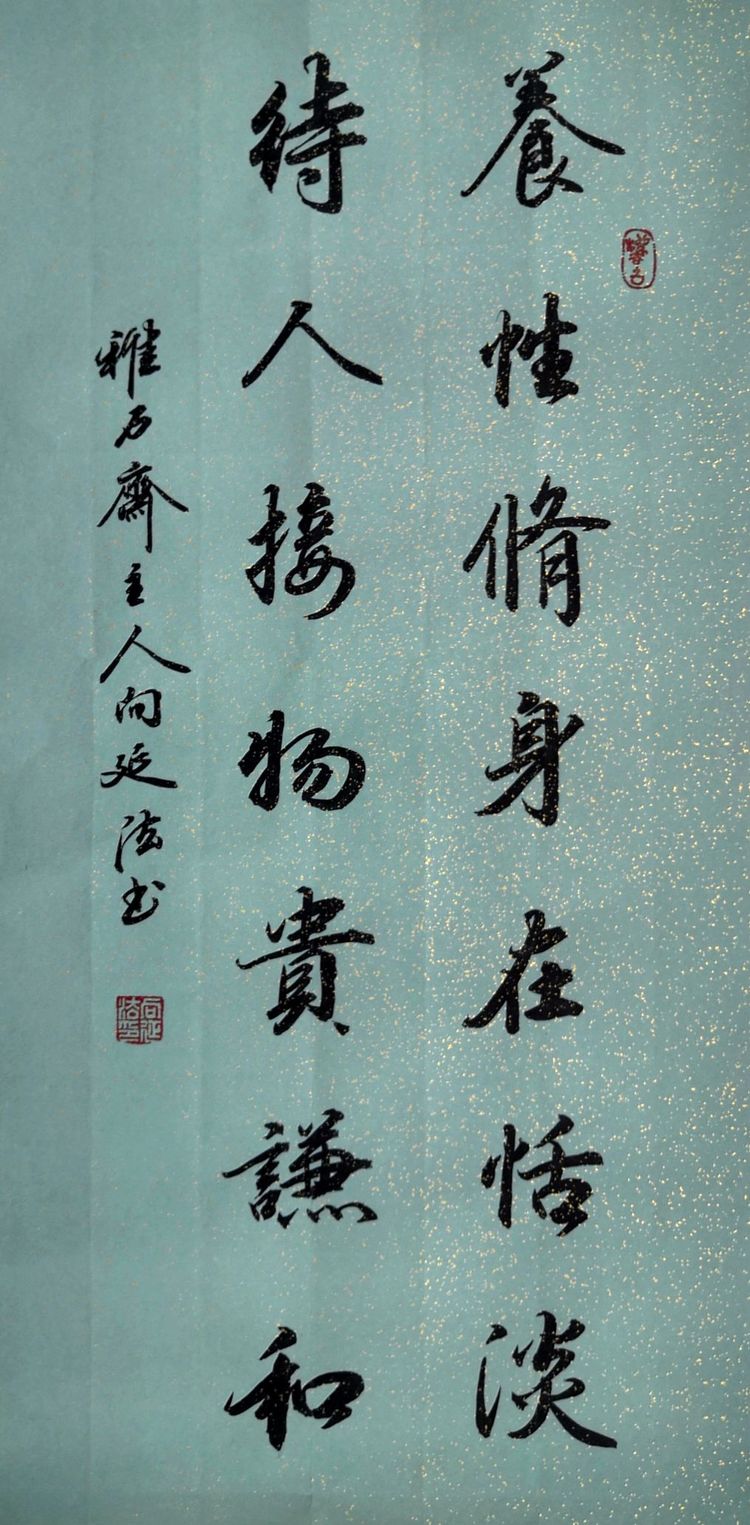 養性脩身在恬淡
待人接物貴謙和
雅石齋主人向延法书
向延法印